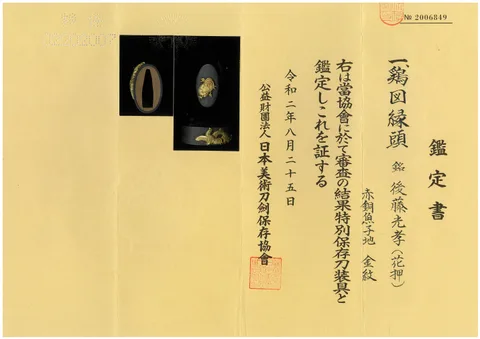 № 2006849
鑑定書
一、鶏図縁頭 銘 後藤光孝(花押)
赤銅魚子地 金紋
右は當協會に於て審査の結果特別保存刀装具と
鑑定しこれを証する
令和二年八月二十五日
公益財團法人 日本美術刀劍保存協會